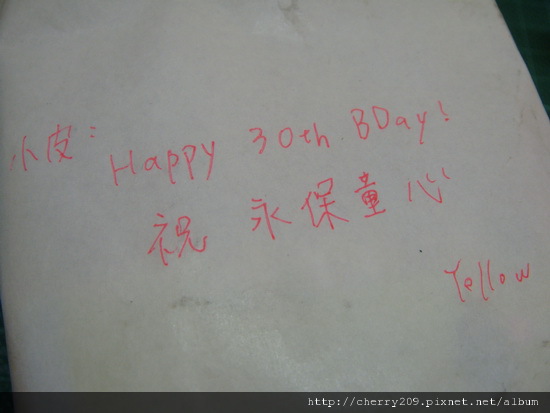 小皮：
Happy 30th BDay!
祝 永保童心
Yellow
http://cherry209.pixnet.net/album